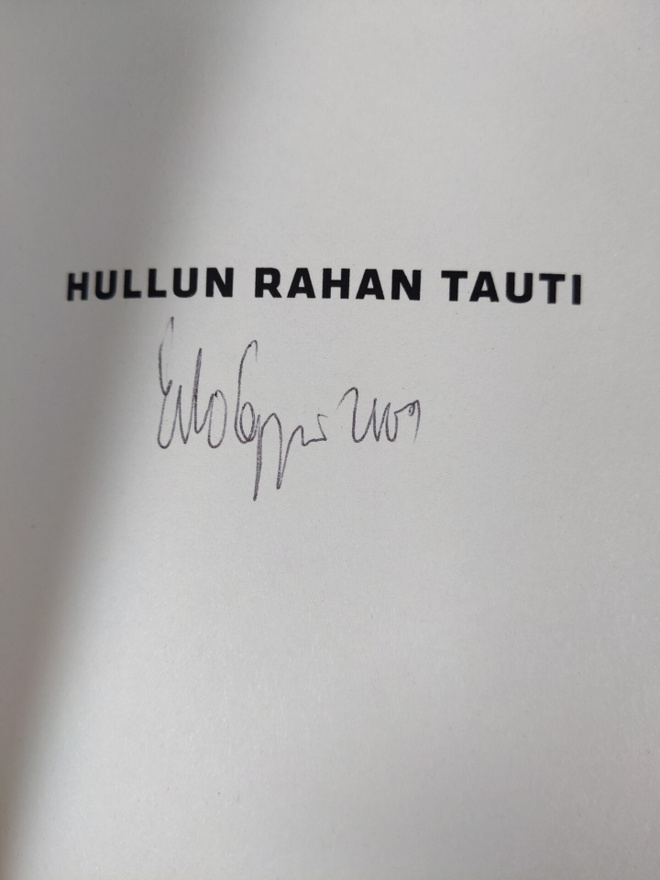 HULLUN RAHAN TAUTI
2009